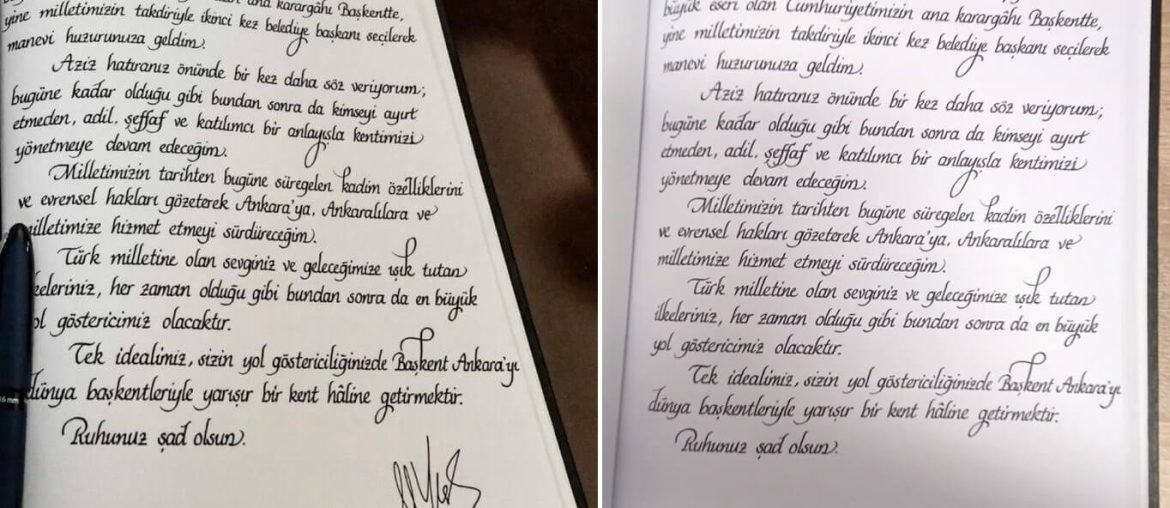 ana karargâhı Başkentte,
yine milletimizin takdiriyle ikinci kez belediye başkanı seçilerek
manevi huzurunuza geldim.
Aziz hatıranız önünde bir kez daha söz veriyorum;
bugüne kadar olduğu gibi bundan sonra da kimseyi ayırt
etmeden, adil, şeffaf ve katılımcı bir anlayışla kentimizi
yönetmeye devam edeceğim.
Milletimizin tarihten bugüne süregelen kadim özelliklerini
ve evrensel hakları gözeterek Ankara'ya, Ankaralılara ve
milletimize hizmet etmeyi sürdüreceğim.
Türk milletine olan sevginiz ve geleceğimize ışık tutan
keleriniz, her zaman olduğu gibi bundan sonra da en büyük
ol göstericimiz olacaktır.
Tek idealimiz, sizin yol göstericiliğinizde Başkent Ankara'yı
dünya başkentleriyle yarışır bir kent hâline getirmektir.
Ruhunuz şad olsun.
büyük eseri olan Cumhuriyetimizin ana karargâhı Başkentte,
yine milletimizin takdiriyle ikinci kez belediye başkanı seçilerek
manevi huzurunuza geldim.
Aziz hatıranız önünde bir kez daha söz veriyorum;
bugüne kadar olduğu gibi bundan sonra da kimseyi ayırt
etmeden, adil, şeffaf ve katılımcı bir anlayışla kentimizi
yönetmeye devam edeceğim.
Milletimizin tarihten bugüne süregelen kadim özelliklerini
ve evrensel hakları gözeterek Ankara'ya, Ankaralılara ve
milletimize hizmet etmeyi sürdüreceğim.
Türk milletine olan sevginiz ve geleceğimize ışık tutan
ilkeleriniz, her zaman olduğu gibi bundan sonra da en büyük
yol göstericimiz olacaktır.
Tek idealimiz, sizin yol göstericiliğinizde Başkent Ankara'yı
dünya başkentleriyle yarışır bir kent hâline getirmektir.
Ruhunuz şad olsun.